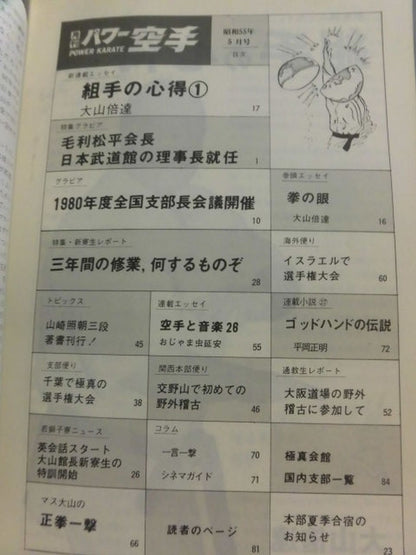 月刊 パワー空手
POWER KARATE
昭和55年
5月号
目次
新連載エッセイ
組手の心得①
大山倍達
17
特集グラビア
毛利松平会長
日本武道館の理事長就任
1
グラビア
1980年度全国支部長会議開催
10
巻頭エッセイ
拳の眼
大山倍達
16
特集・新寮生レポート
三年間の修業,何するものぞ
28
海外便り
イスラエルで
選手権大会
60
トピックス
山崎照朝三段
著書刊行!
45
連載エッセイ
空手と音楽26
おじゃま虫延安
55
連載小説
ゴッドハンドの伝説
平岡正明
72
支部便り
千葉で極真の
選手権大会
38
関西本部便り
交野山で初めての
野外稽古
46
通教生レポート
大阪道場の野外
稽古に参加して
52
若獅子寮ニュース
英会話スタート
大山館長新寮生の
特訓開始
26
コラム
一言一撃
70
シネマガイド
71
極真会館
国内支部一覧
84
マス大山の
正拳一撃
66
読者のページ
81
本部夏季合宿の
お知らせ
23